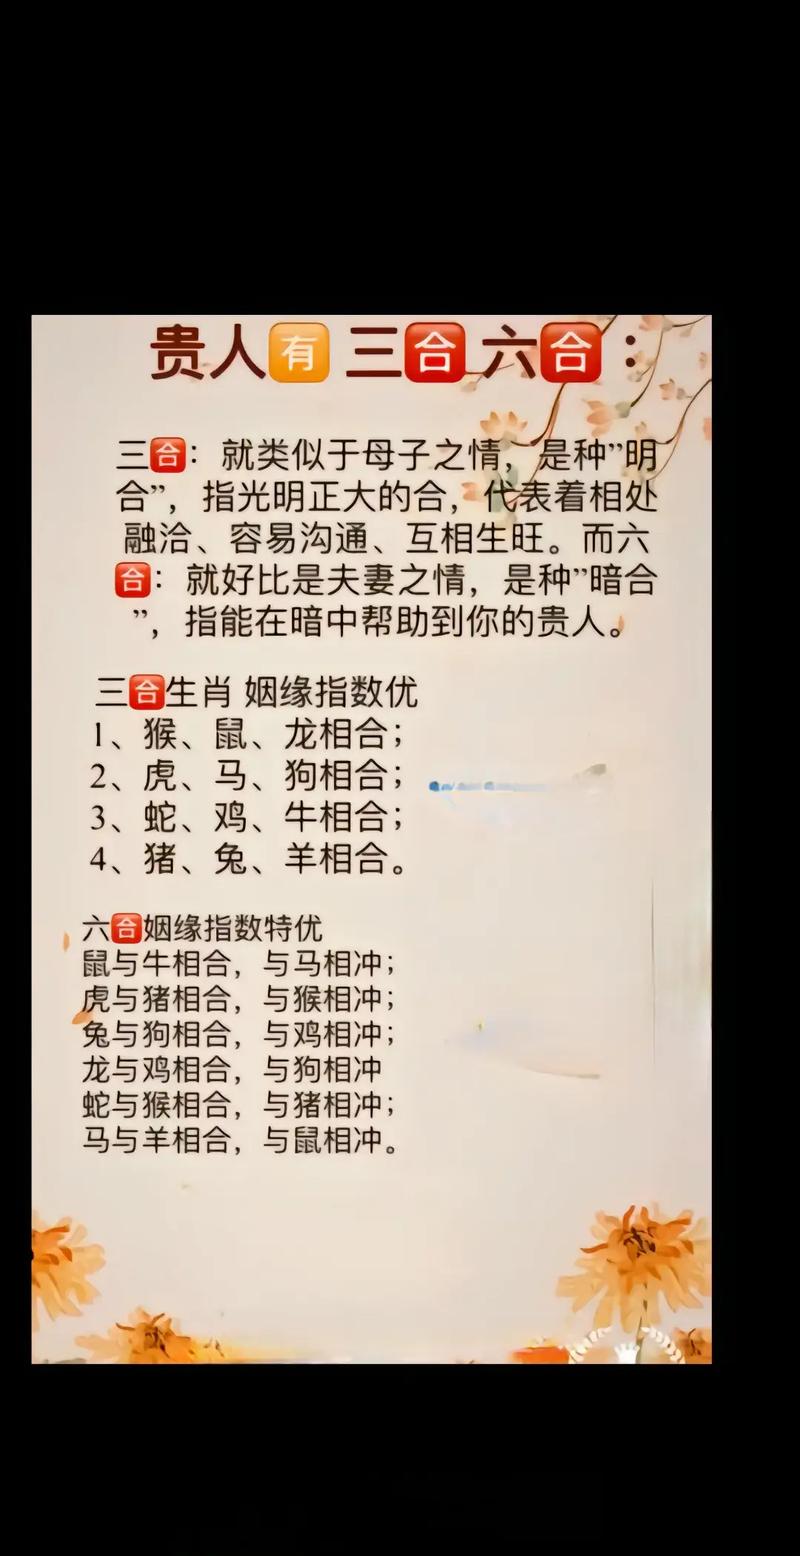 贵人有 三合 六合：
三合：就类似于母子之情，是种”明
合”，指光明正大的合，代表着相处
融洽、容易沟通、互相生旺。而六
合：就好比是夫妻之情，是种”暗合
”，指能在暗中帮助到你的贵人。
三合生肖 姻缘指数优
1、猴、鼠、龙相合；
2、虎、马、狗相合；
3、蛇、鸡、牛相合；
4、猪、兔、羊相合。
六合姻缘指数特优
鼠与牛相合，与马相冲；
虎与猪相合，与猴相冲；
兔与狗相合，与鸡相冲；
龙与鸡相合，与狗相冲
蛇与猴相合，与猪相冲；
马与羊相合，与鼠相冲。